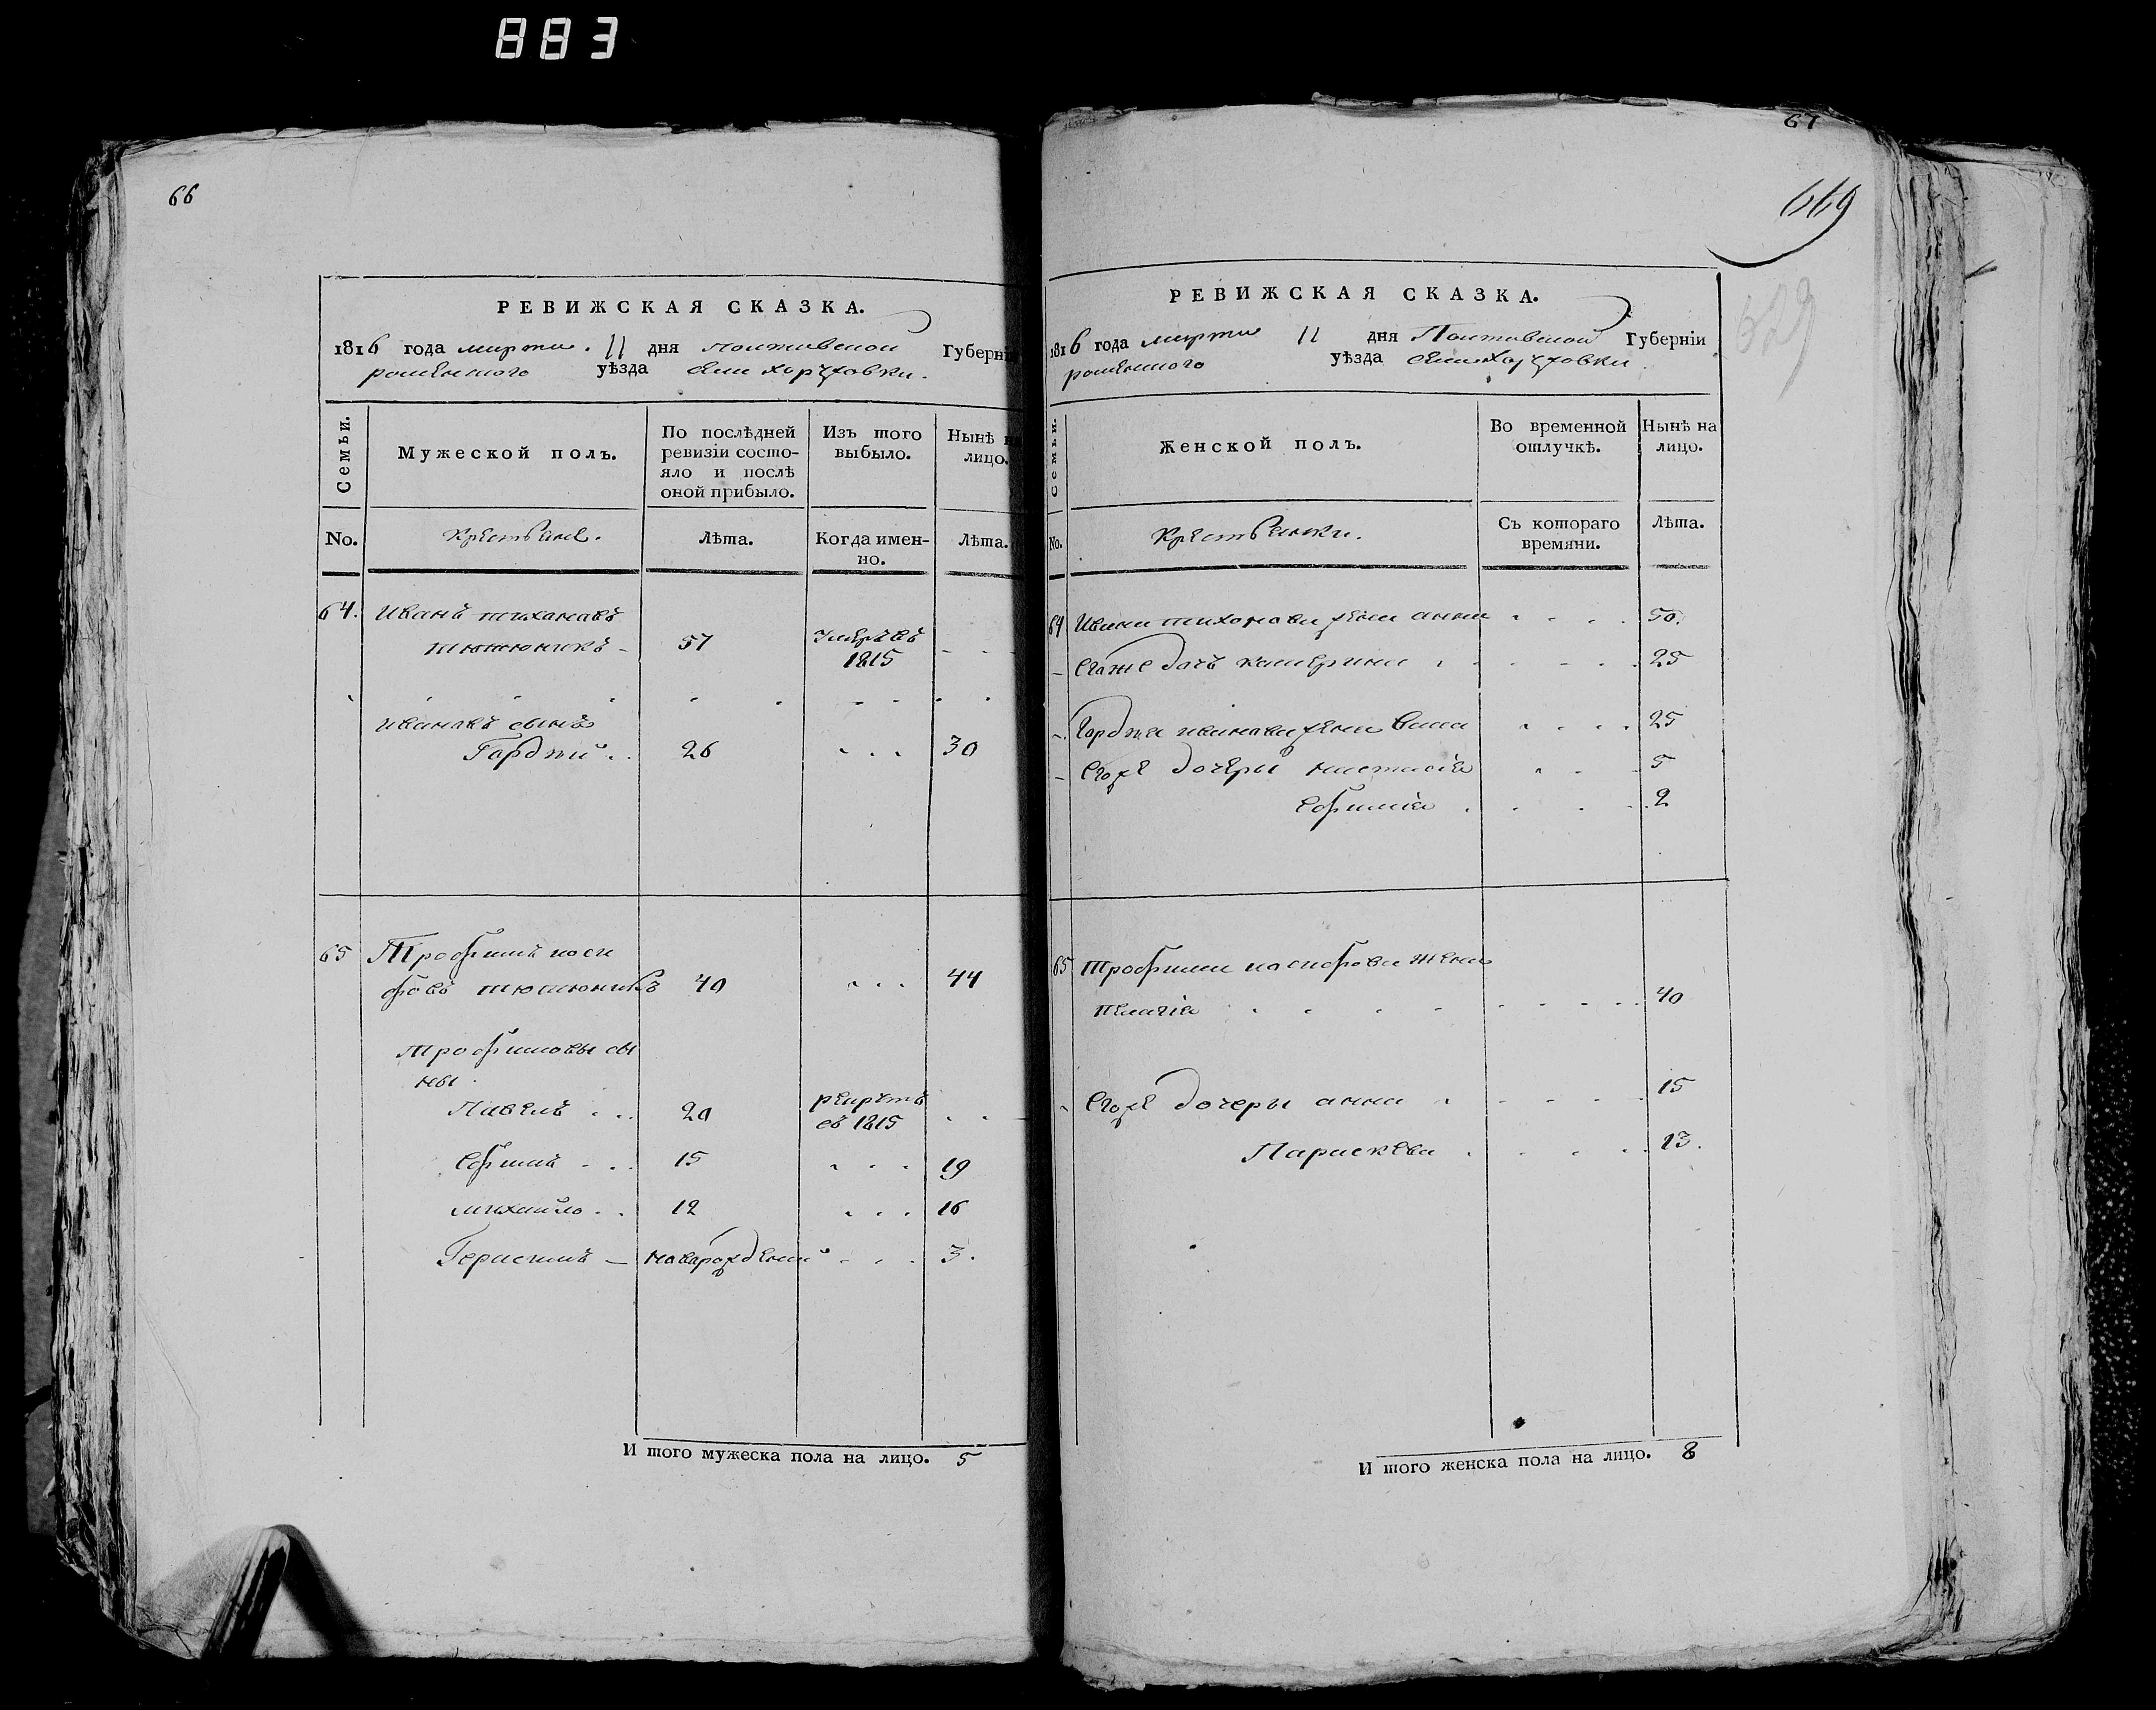 883
66
РЕВИЖСКАЯ СКАЗКА.
1816 года марта 11 дня Полтавской Губерніи
роменского уѣзда села хоружовки.
Семьи.
Мужеской полъ.
По послѣдней ревизіи состояло и послѣ оной прибыло.
Изъ того выбыло.
Нынѣ на лицо.
No.
Крестьяне.
Лѣта.
Когда именно.
Лѣта.
64. Иванъ тихановъ
тютюникъ - 57 умеръ въ 1815
ивановъ сынъ
Гордѣй 26 30
65 Трофимъ носи
форовъ тютюникъ 40 44
трофимовы сы
ны
Павелъ 20 рекрутъ въ 1815
Ефимъ 15 19
михайло 12 16
Герасимъ — новорождений 3.
И того мужеска пола на лицо. 5
67
669
629
РЕВИЖСКАЯ СКАЗКА.
1816 года марта 11 дня Полтавской Губерніи
роменского уѣзда села хоружовки
Семьи.
Женской полъ.
Во временной отлучкѣ.
Нынѣ на лицо.
No.
Крестьянки.
Съ котораго времяни.
Лѣта.
64 Ивана тихонова жена анна 50.
Егоже дочъ катерина 25
Гордѣя иванова жена васса 25
Егоже дочеры настасія 5
Ефимія 2
65 трофима никифорова жена
пелагія 40
Егоже дочеры анна 15
Параскева 13.
И того женска пола на лицо. 8